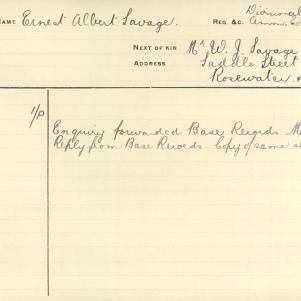 NAME Ernest Albert Savage. REG. &C. Divisional
Amm.
NEXT OF KIN Mr W. J. Savage
ADDRESS Saddle Street
Rosewater.
1/P
Enquiry forwarded Base Records
Reply from Base Records. Copy of same